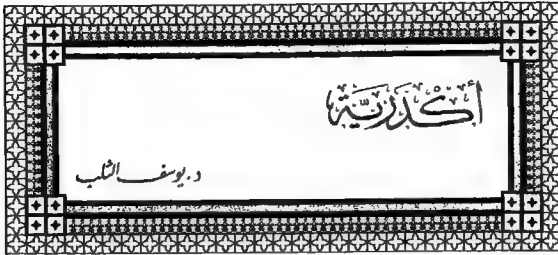 أَكْدَرِيَّة
د. يوسف الثلب